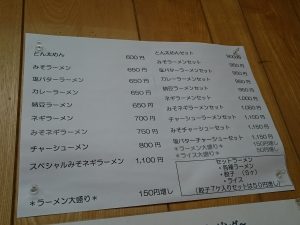 とん太めん 600円
みそラーメン 650円
塩バターラーメン 650円
カレーラーメン 650円
納豆ラーメン 650円
ネギラーメン 700円
みそネギラーメン 750円
チャーシューメン 800円
スペシャルみそネギラーメン 1,100円
＊ラーメン大盛り＊ 150円増し
とん太めんセット 900円
みそラーメンセット 950円
塩バターラーメンセット 950円
カレーラーメンセット
納豆ラーメンセット
ネギラーメンセット
みそネギラーメンセット
チャーシューメンセット
みそチャーシューセット 1,150円
塩バターチャーシューセット
＊ラーメン大盛り＊ 150円増し
＊ライス大盛り＊ 50円増し
セットラーメン
・各種ラーメン
・餃子（5ヶ）
・ライス
（餃子7ケ入りセットは50円増し）